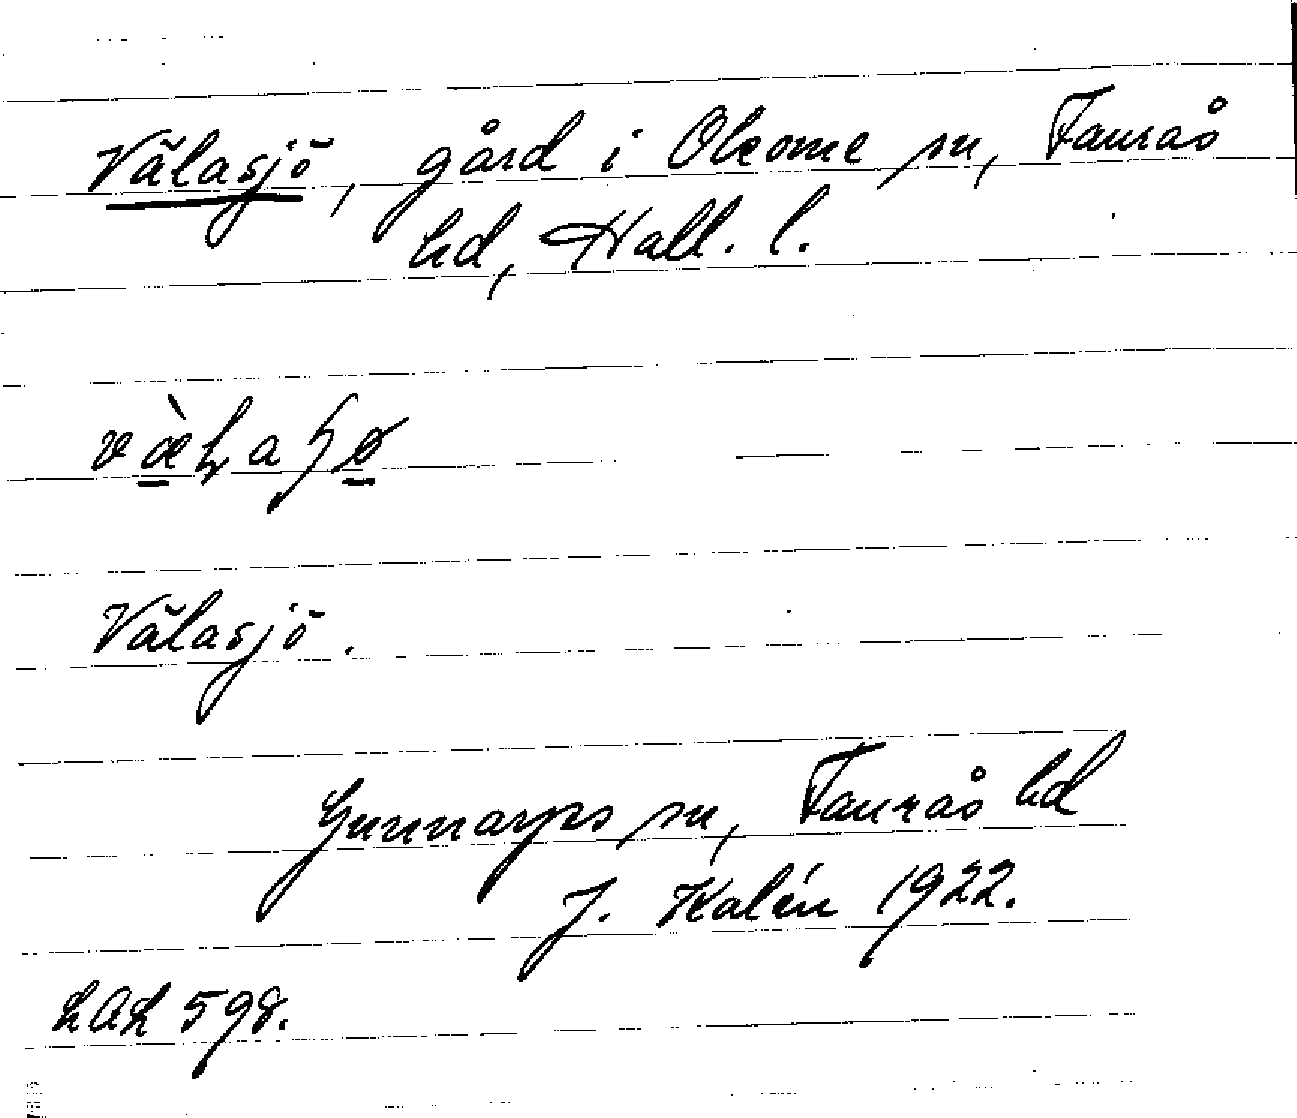 Välasjö, gård i Okome sn, Faurås
hd, Hall. l.
Välasjö.
Gunnarps sn, Faurås hd
J. Kalén 1922.
LAL 598.